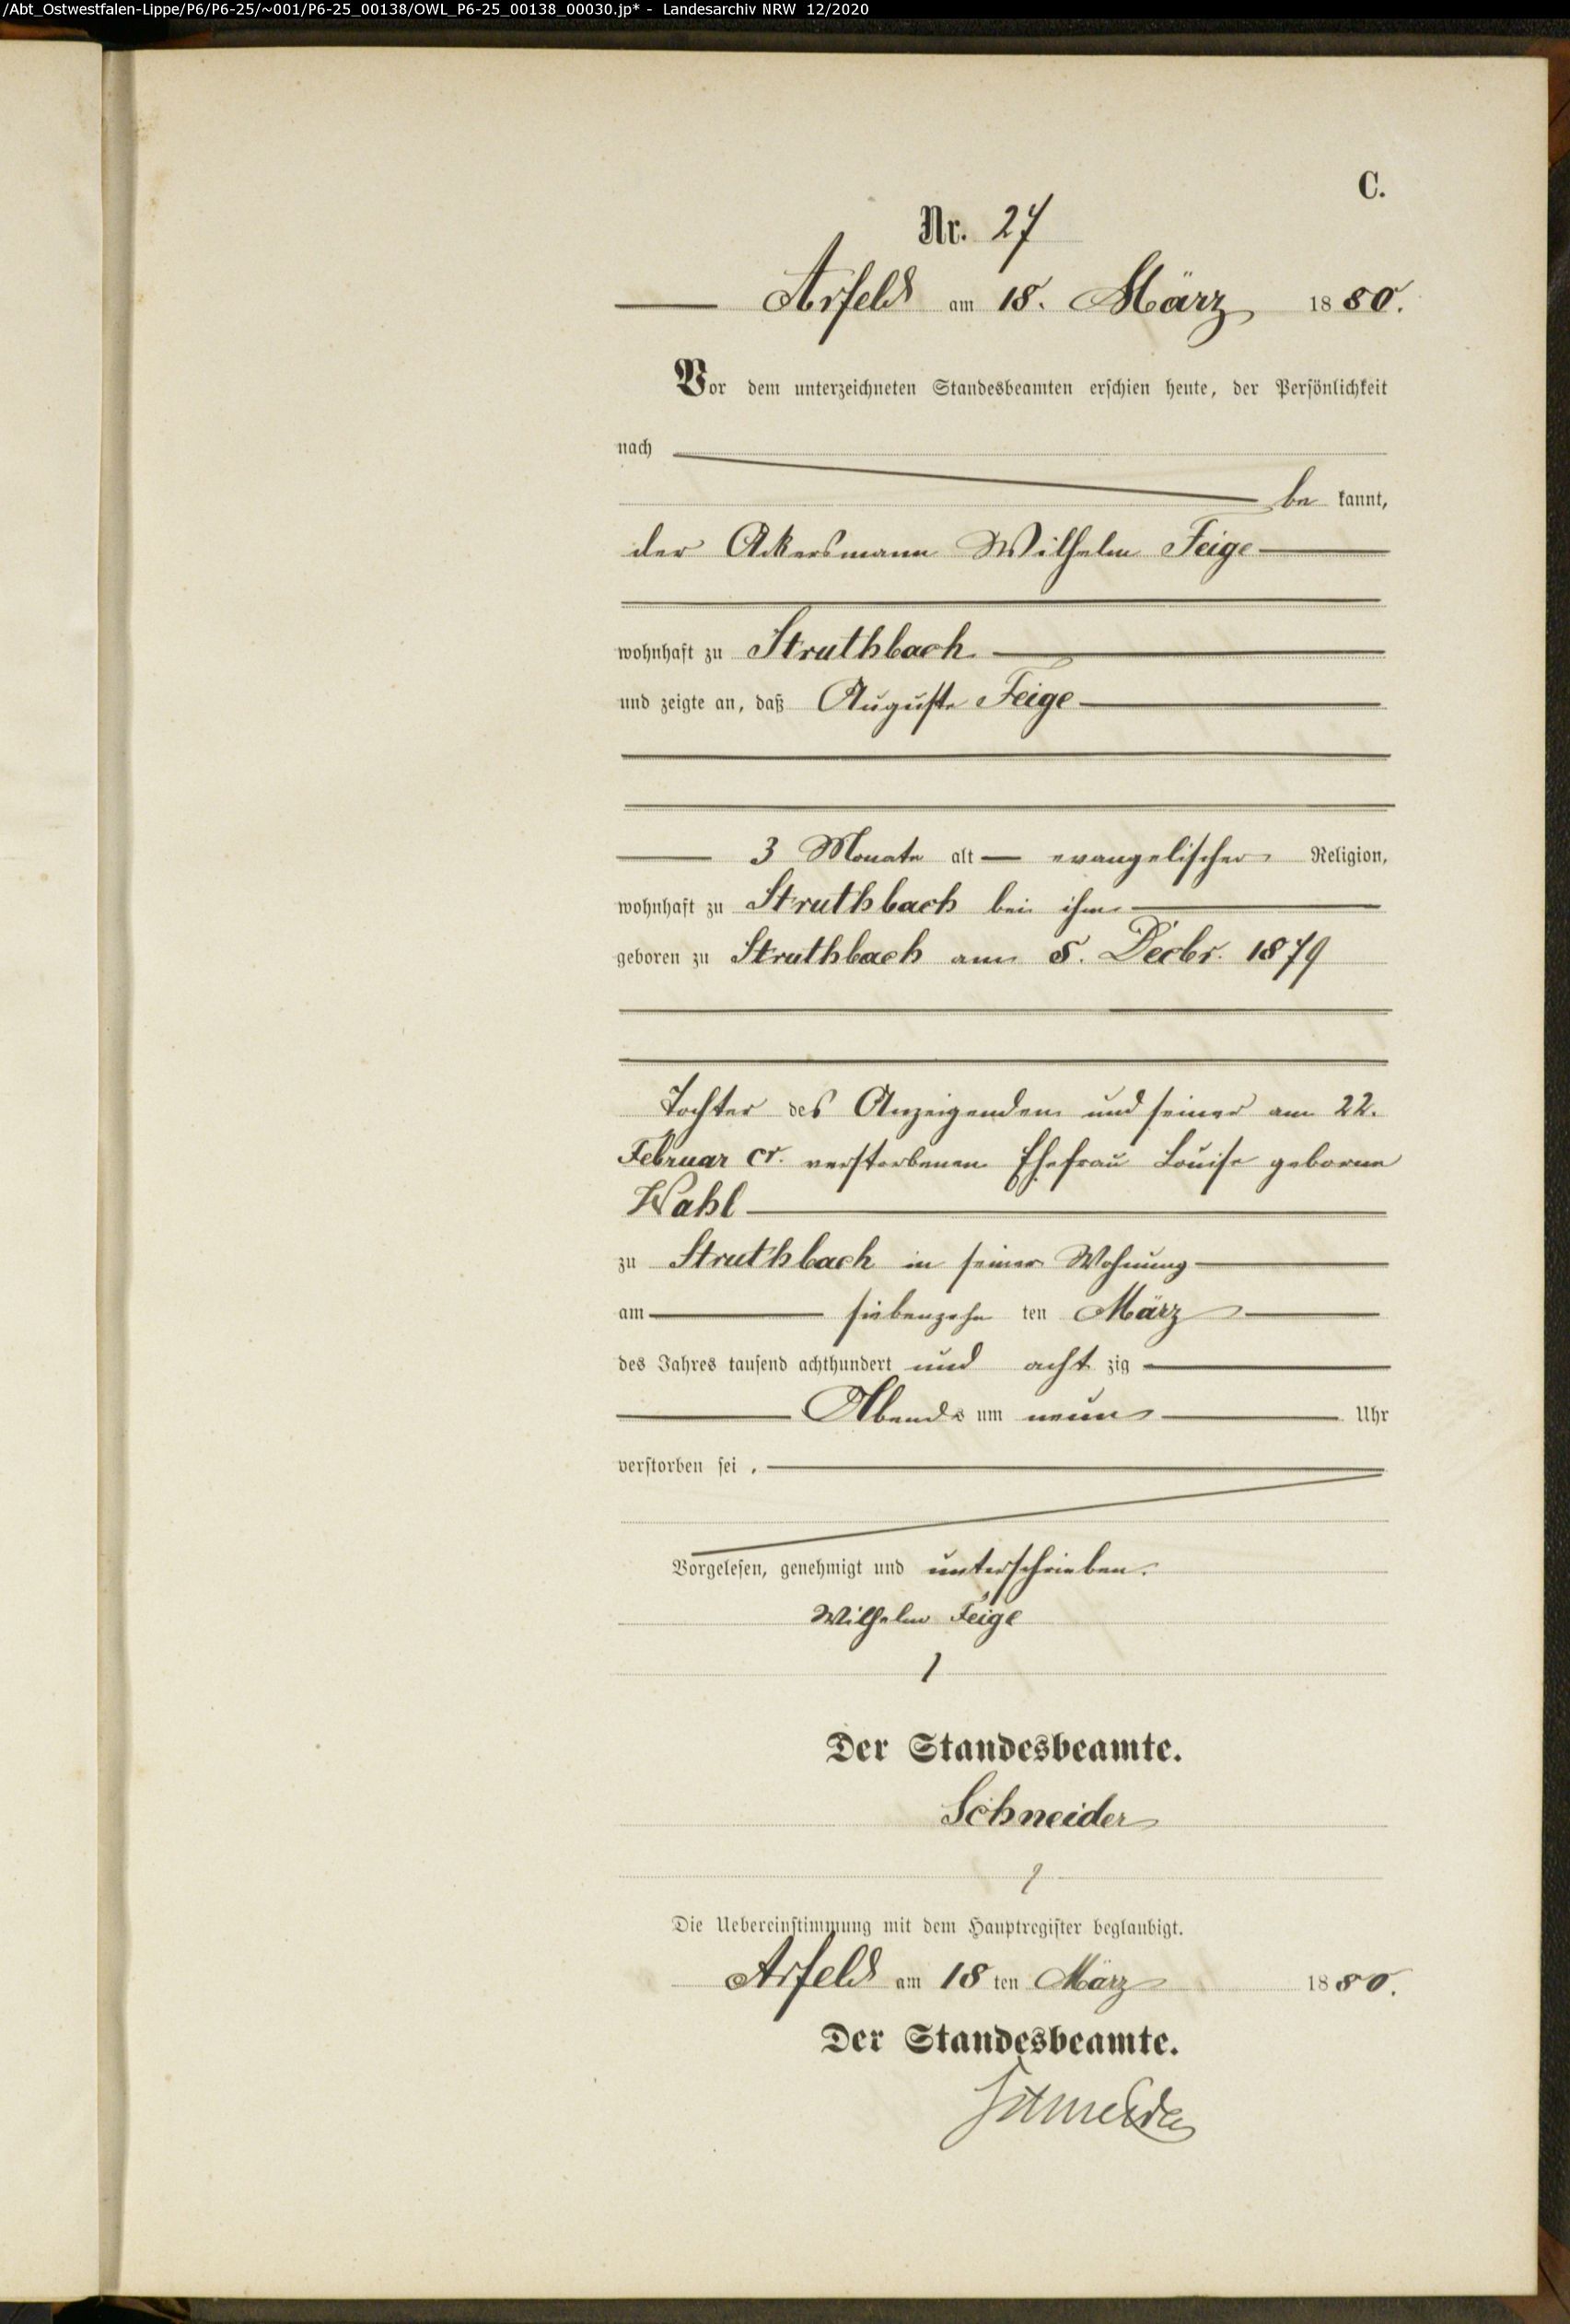 /Abt_Ostwestfalen-Lippe/P6/P6-25/~001/P6-25_00138/OWL_P6-25_00138_00030.jp* - Landesarchiv NRW 12/2020
C.
Nr. 27
Arfeld am 18. März 1880.
Vor dem unterzeichneten Standesbeamten erschien heute, der Persönlichkeit
nach
be kannt,
der Ackersmann Wilhelm Feige
wohnhaft zu Struthbach
und zeigte an, daß Auguste Feige
3 Monate alt evangelischer Religion,
wohnhaft zu Struthbach bei ihm
geboren zu Struthbach am 8. Decbr. 1879
Tochter des Anzeigenden und seiner am 22.
Februar cr. verstorbenen Ehefrau Louise geborne
Wahl
zu Struthbach in seiner Wohnung
am siebenzehn ten März
des Jahres tausend achthundert und acht zig
Abends um neun Uhr
verstorben sei.
Vorgelesen, genehmigt und unterschrieben.
Wilhelm Feige
Der Standesbeamte.
Schneider
Die Uebereinstimmung mit dem Hauptregister beglaubigt.
Arfeld am 18 ten März 1880.
Der Standesbeamte.
Schneider